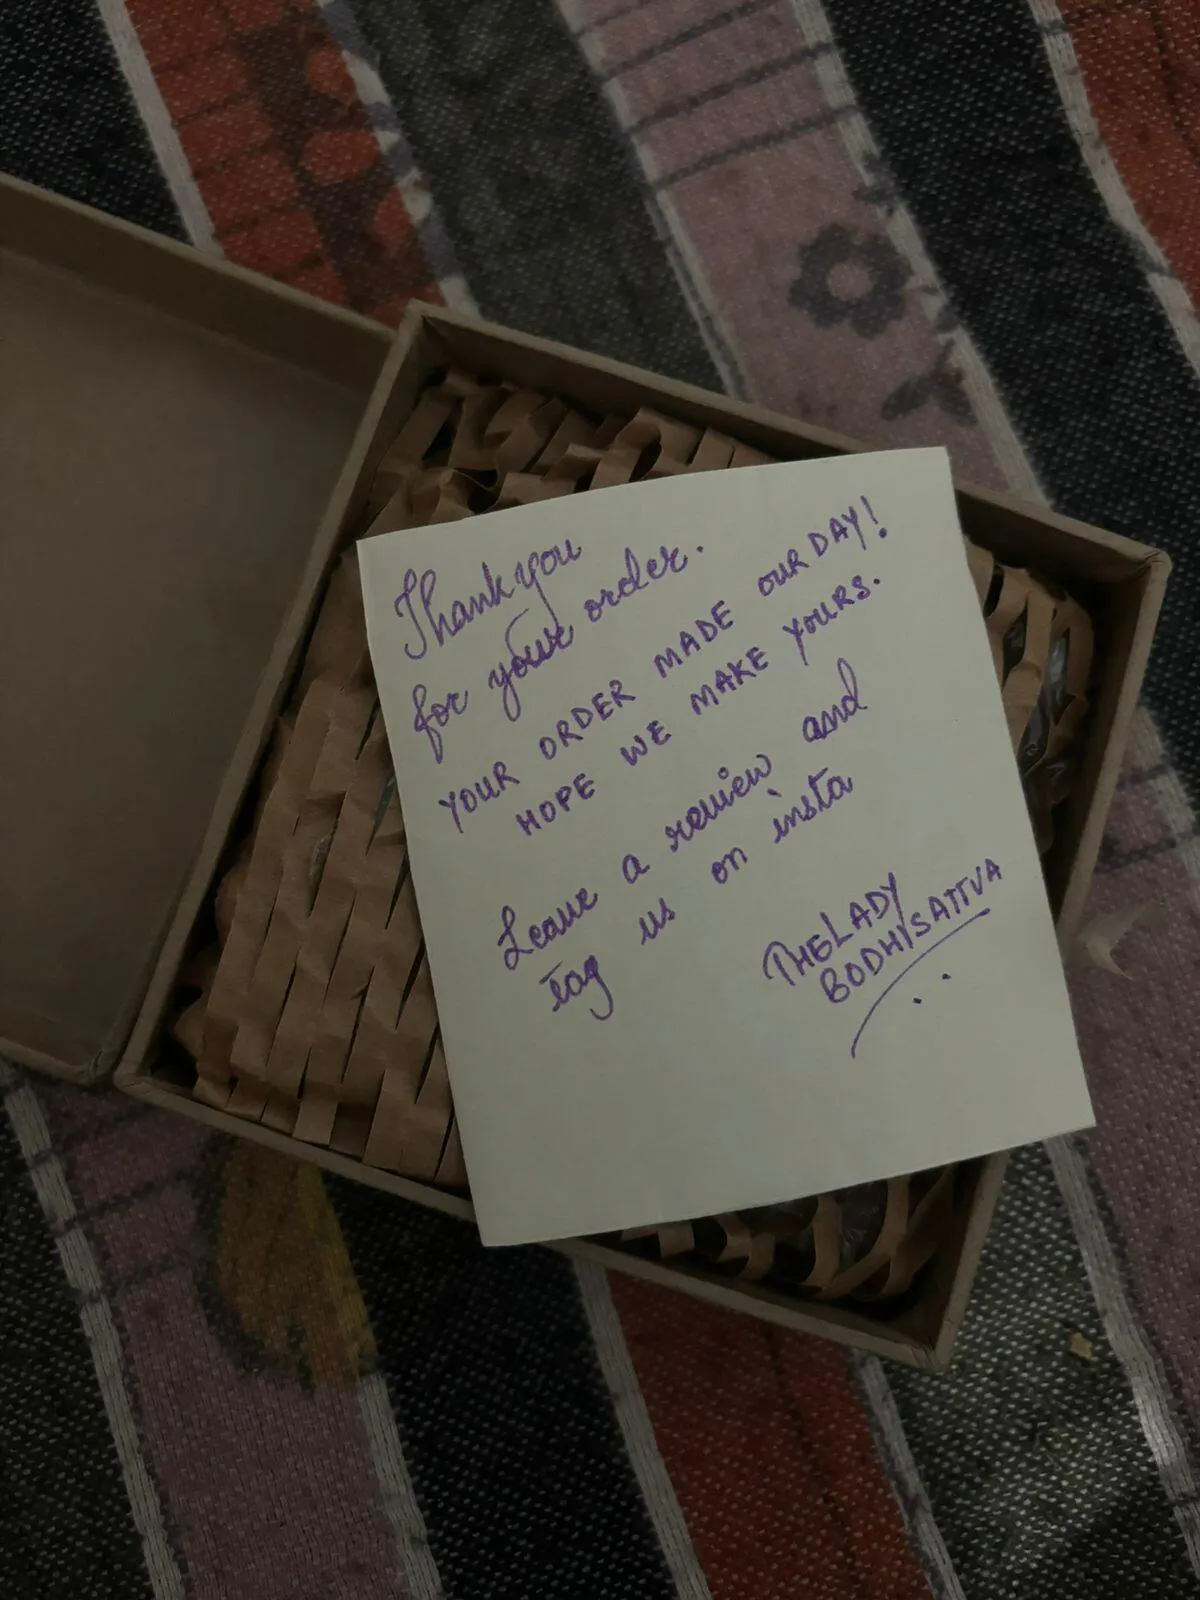 Thank you
for your order.
YOUR ORDER MADE OUR DAY!
HOPE WE MAKE YOURS.
Leave a review and
tag us on insta
THELADY
BODHISATTVA